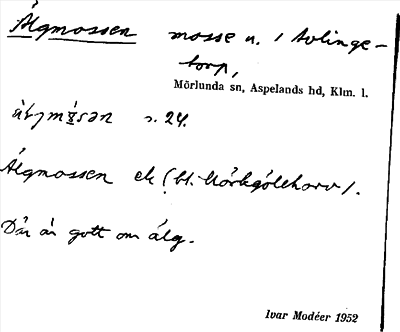 Älgmossen mosse n. / Avlinge-
torp,
Mörlunda sn, Aspelands hd, Klm. l.
s. 24.
Älgmossen ek (bl.
Där är gott om älg.
Ivar Modéer 1952